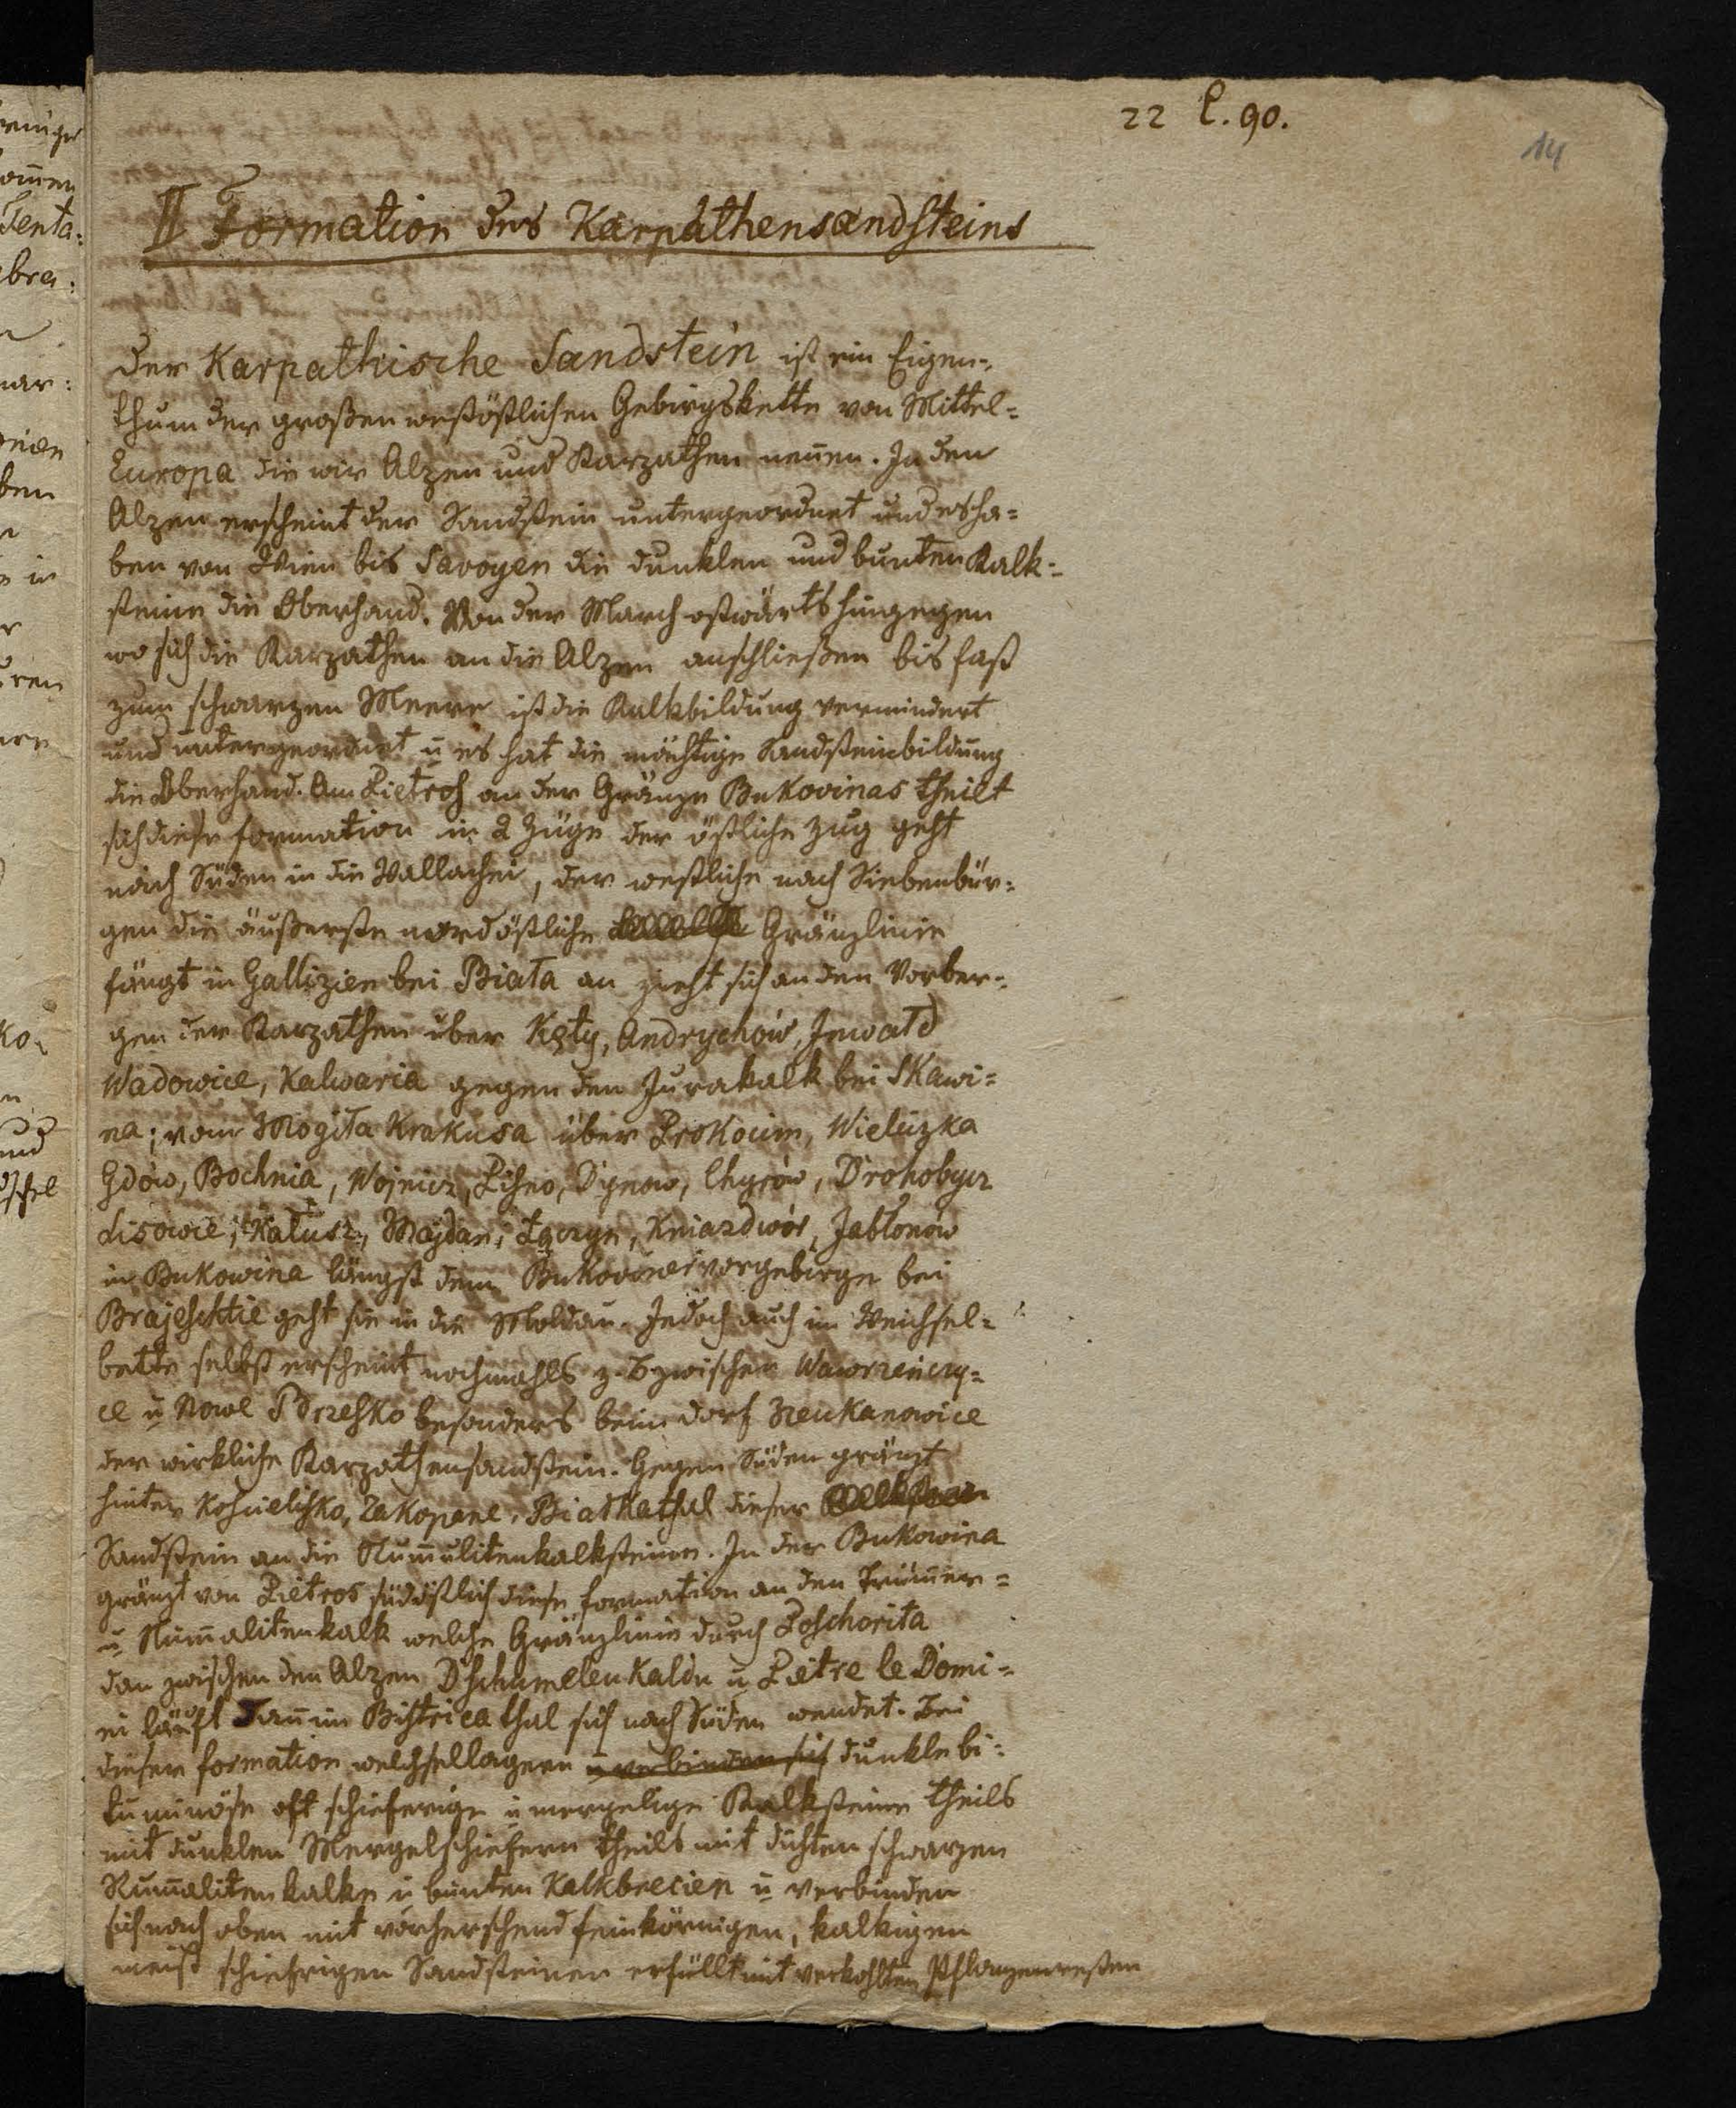 22 C. 90.
14
II Formation des Karpathensandsteins
Der Karpathische Sandstein ist ein Eigen=
thum der großen westöstlichen Gebirgskette von Mittel=
Europa die wir Alpen und Karpathen nen̄en. In den
Alpen erscheint der Sandstein untergeordnet und es ha=
ben von Wien bis Savoyen die dunklen und bunten Kalk=
steine die Oberhand. Von der March ostwärts hingegen
wo sich die Karpathen an die Alpen anschließen bis fast
zum schwarzen Meere ist die Kalkbildung vermindert
und untergeordnet u es hat die mächtige Sandsteinbildung
die Oberhand. Am Pietrosz an der Gränze Bukovinas theilt
sich diese formation in 2 Züge der östliche Zug geht
nach Süden in die Wallachei, der westliche nach Siebenbür=
gen die äußerste nordöstliche Gränzlinie
fängt in Gallizien bei Biała an zieht sich an den Vorber=
gen der Karpathen über Kęty, Andrychów, Inwałd
Wadowice, Kalwaria gegen den Jurakalk bei Skawi=
na; vom Mogiła Krakusa über Prokocim, Wieliczka
Gdów, Bochnia, Wojnicz, Pilsno, Dynow, Chyrów, Drohobycz
Lisowce, Kałusz, Majdan, Łączyn, Kniazdwór, Jabłonów
in Bukowina längst dem Bukovinervorgebirge bei
Brajeschtie geht sie in die Moldau. Jedoch auch im Weichsel=
bette selbst erscheint nochmahls z. B zwischen Wawrzeńczy=
ce u Nowe Brzesko besonders beim dorf
der wirkliche Karpathensandstein. Gegen Süden gränzt
hinter Koscielisko, Zakopane, Białkathal dieser
Sandstein an die Num̄ulitenkalksteine. In der Bukowina
gränzt von Pietros südöstlich diese formation an den Trüm̄er=
u Num̄alitenkalk welche Gränzlinie durch Poschorita
dan zwischen den Alpen Dschumeleu Kaldu u Pietre le Domi=
ei läuft dan̄ im Bistrica thal sich nach Süden wendet. Bei
dieser formation welchsellagern u verbinden sich dunkle bi=
tuminöse oft schieferige u mergelige Kalksteine theils
mit dunklen Mergelschiefern theils mit dichten schwarzen
Num̄alitenkalke u bunten Kalkbrecien u verbinden
sich nach oben mit vorherschend feinkörnigen, kalkigen
meist schiefrigen Sandsteinen erfüllt mit verkohlten Pflanzenresten